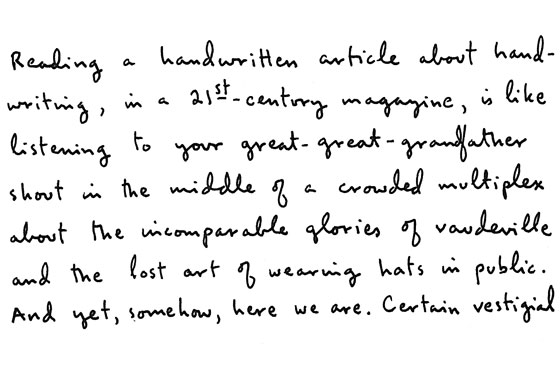 Reading a handwritten article about hand-
writing, in a 21st-century magazine, is like
listening to your great-great-grandfather
shout in the middle of a crowded multiplex
about the incomparable glories of vaudeville
and the lost art of wearing hats in public.
And yet, somehow, here we are. Certain vestigial